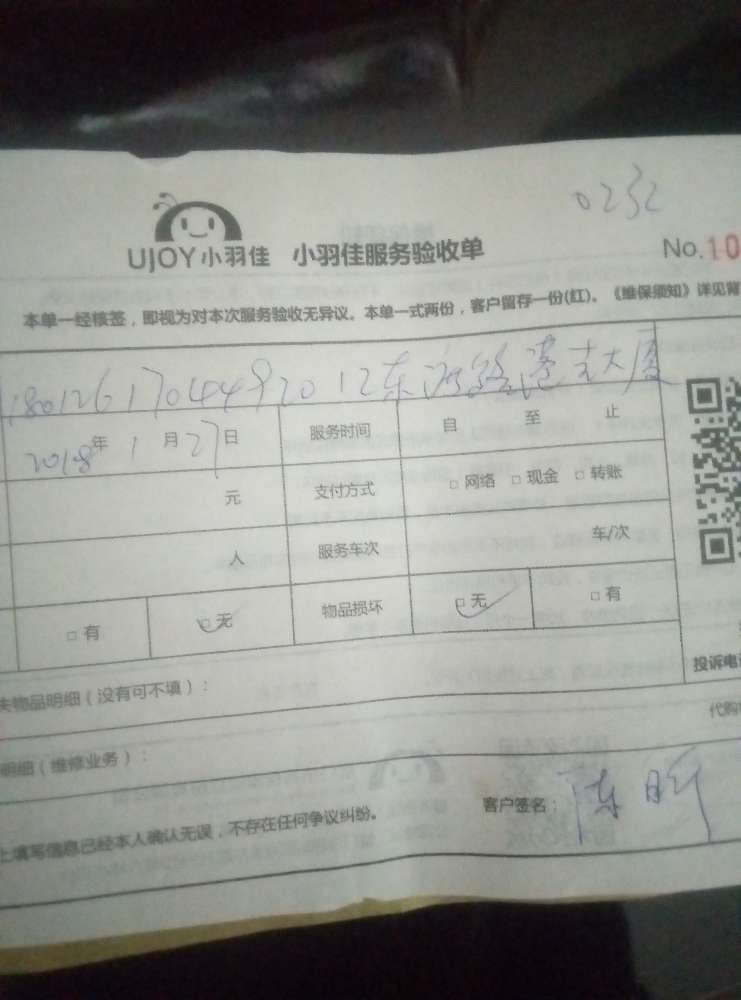 0232
UJOY小羽佳 小羽佳服务验收单 No.10
本单一经核签，即视为对本次服务验收无异议。本单一式两份，客户留存一份(红)。《维保须知》详见背
1801261704492012东
大厦
2018年1月27日 服务时间 自 至 止
元 支付方式 □网络 □现金 □转账
人 服务车次 车/次
□有 □无 物品损坏 □无 □有
投诉电
失物品明细（没有可不填）：
代购
明细（维修业务）：
上填写信息已经本人确认无误，不存在任何争议纠纷。 客户签名：陈昕